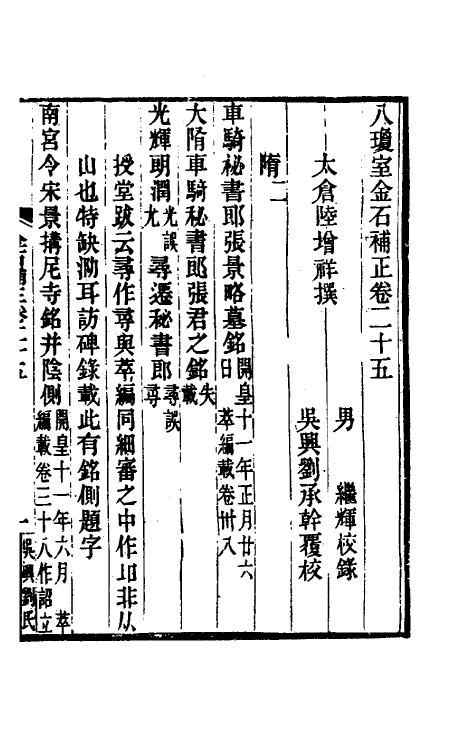 八瓊室金石補正卷二十五
太倉陸增祥撰
男　繼輝校錄
吳興劉承幹覆校
隋二
車騎秘書郎張景略墓銘開皇十一年正月廿六日　萃編載卷卅八
大隋車騎秘書郎張君之銘失載
光輝明潤光誤尤　尋遷秘書郎尋誤㝷
授堂跋云尋作㝷與萃編同細審之中作𠮛非从
山也特缺泐耳訪碑錄載此有銘側題字
南宮令宋景搆尼寺銘并陰側開皇十一年六月　萃編載卷三十八作詔立
金石補正卷二十五
一
吳興劉氏